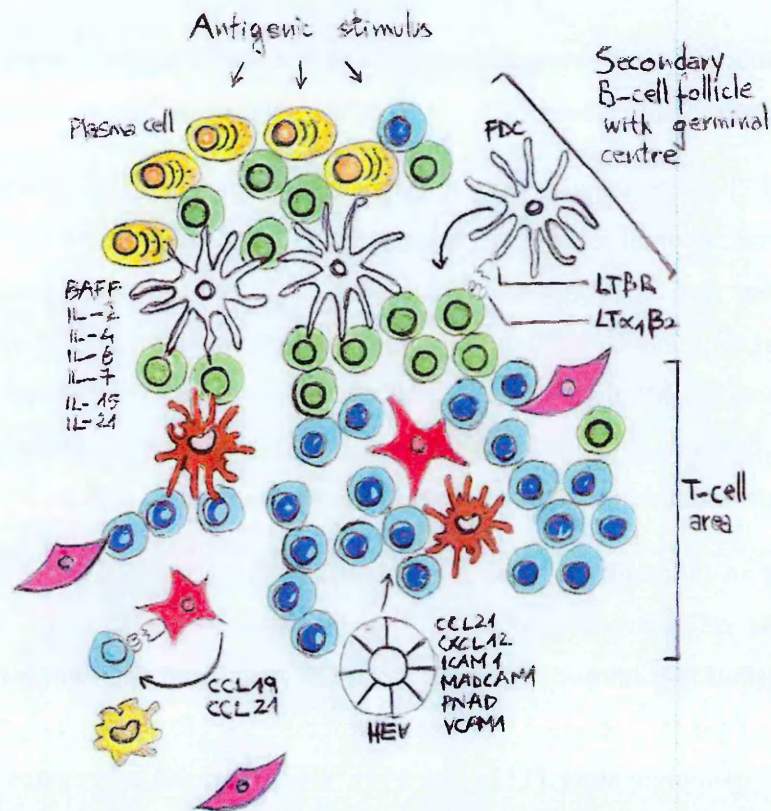 Antigenic stimulus
Secondary
B-cell follicle
with germinal
centre
Plasma cell
FDC
BAFF
IL-2
IL-4
IL-6
IL-7
IL-15
IL-21
LTβR
LTα1β2
T-cell
area
CCL19
CCL21
HEV
CCL21
CXCL12
ICAM1
MADCAM1
PNAD
VCAM1